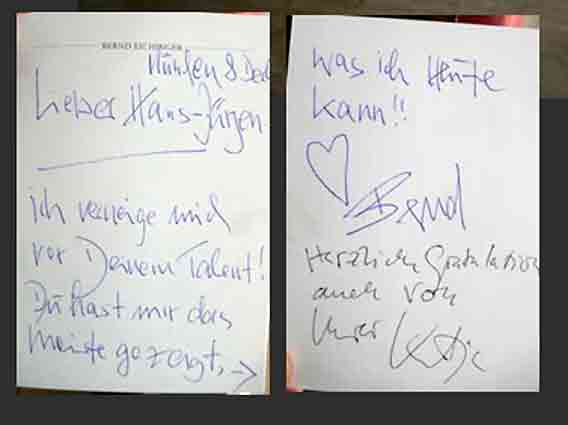 BERND EICHINGER
München 8 Dez
Lieber Hans-Jürgen
ich verneige mich
vor Deinem Talent!
Du hast mir das
meiste gezeigt, →
was ich Heute
kann!!
Bernd
Herzliche Gratulation
auch von
Katja